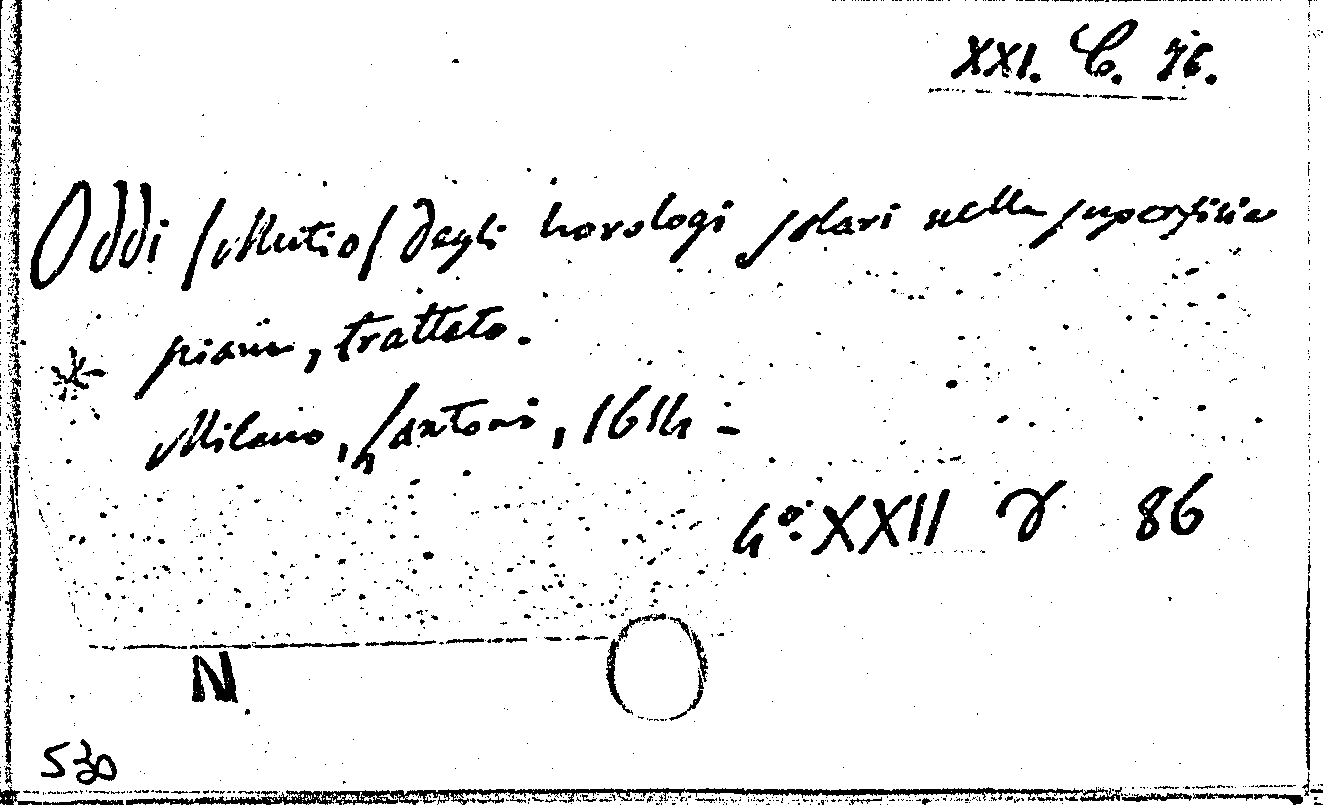 XXI. C. 76.
Oddi (Mutio) degli horologi solari nella superficie
piana, trattato.
Milano, Cantoni, 1614 -
4º: XXII γ 86
N
530